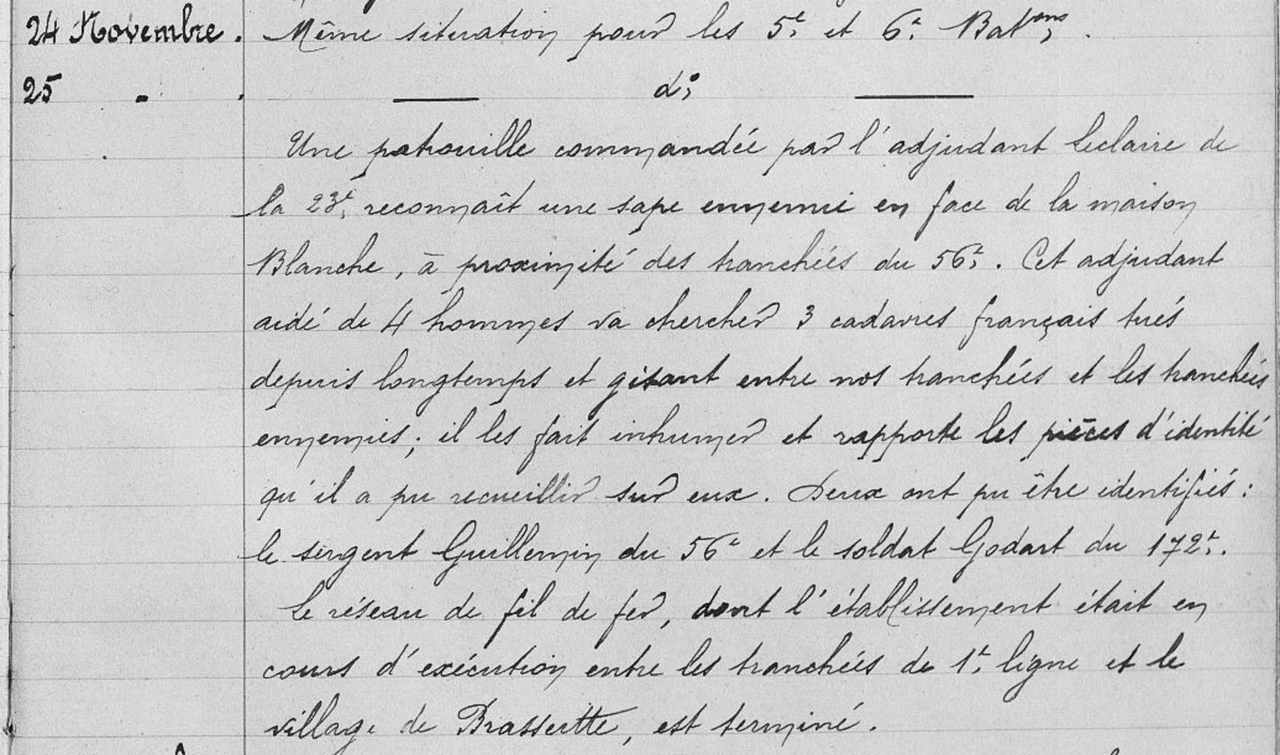 24 Novembre. Même situation pour les 5e et 6e Batons.
25 - . — do —
Une patrouille commandée par l'adjudant Leclaire de
la 23e, reconnaît une sape ennemie en face de la maison
Blanche, à proximité des tranchées du 56e. Cet adjudant
aidé de 4 hommes va chercher 3 cadavres français tués
depuis longtemps et gisant entre nos tranchées et les tranchées
ennemies; il les fait inhumer et rapporte les pièces d'identité
qu'il a pu recueillir sur eux. Deux ont pu être identifiés:
le sergent Guillemin du 56e et le soldat Godart du 172e.
Le réseau de fil de fer, dont l'établissement était en
cours d'exécution entre les tranchées de 1e ligne et le
village de Brasseitte, est terminé.